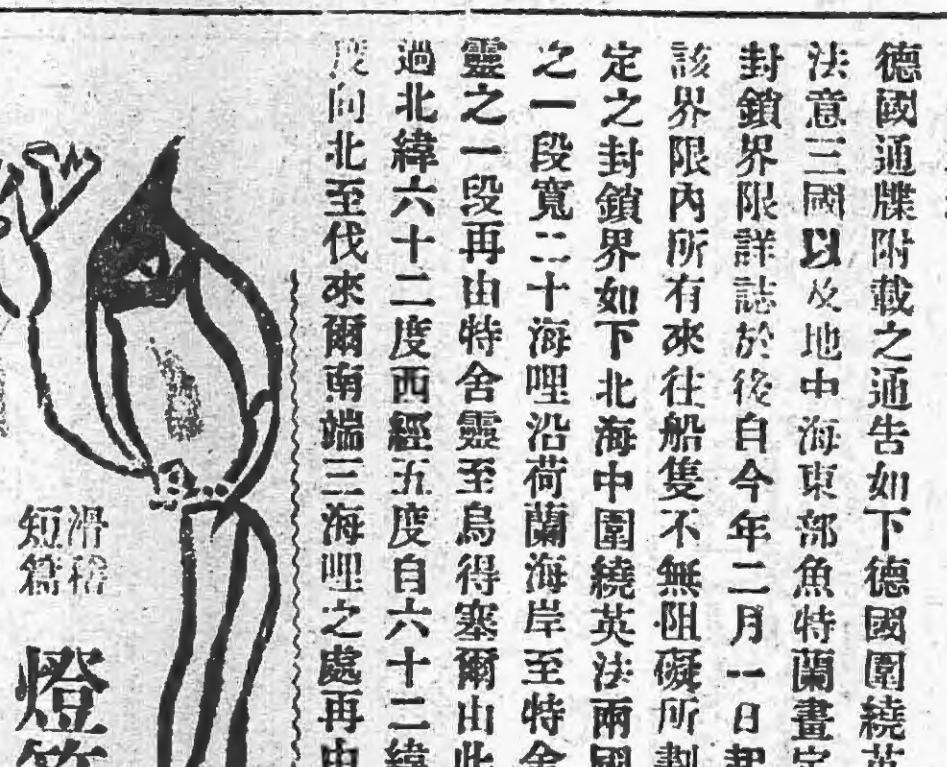 德國通牒附載之通告如下德國圍繞英
法意三國以及地中海東部魚特蘭畫定
封鎖界限詳誌於後自今年二月一日起
該界限內所有來往船隻不無阻礙所劃
定之封鎖界如下北海中圍繞英法兩國
之一段寬二十海哩沿荷蘭海岸至特舍
靈之一段再由特舍靈至烏得塞爾由此
過北緯六十二度西經五度自六十二緯
度向北至伐來爾南端三海哩之處再由
滑稽
短篇
燈